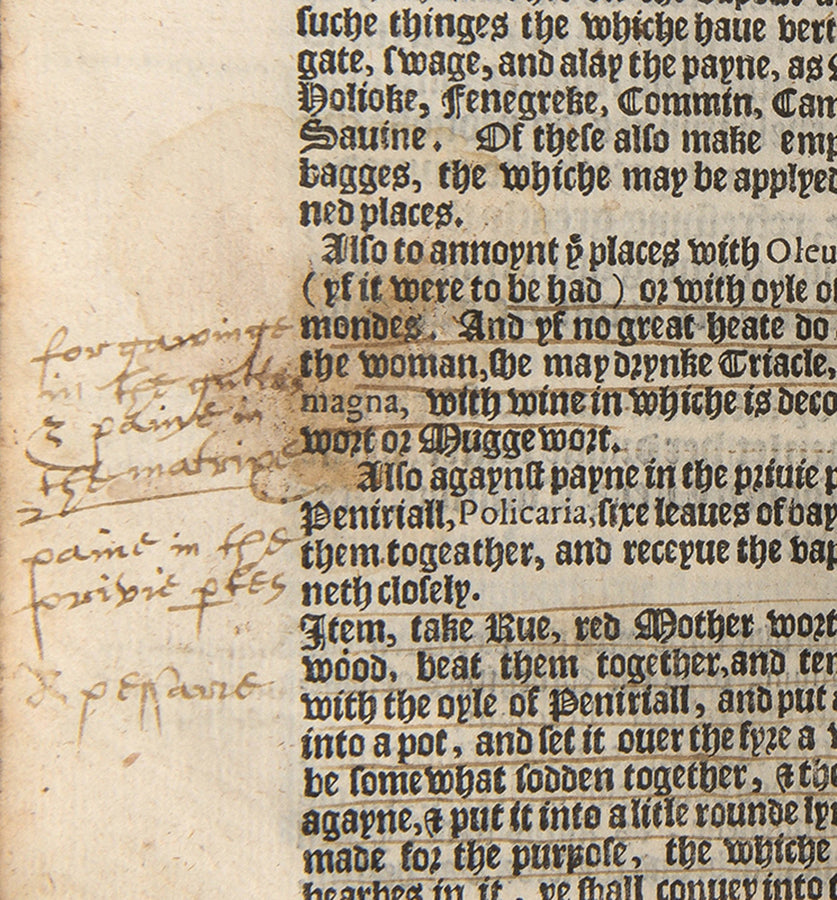 suche thinges the whiche haue vert
gate, swage, and alay the payne, as
Holioke, Fenegreke, Commin, Cam
Sauine. Of these also make emp
bagges, the whiche may be applyed
ned places.
Also to annoynt yͤ places with Oleu
( yf it were to be had ) or with oyle of
mondes. And yf no great heate do
the woman, she may drynke Triacle,
magna, with wine in whiche is deco
wort or Muggewort.
Also agaynst payne in the priuie p
Peniriall, Policaria, sixe leaues of bay
them togeather, and receyue the vap
neth closely.
Item, take Rue, red Mother wort
wood, beat them together, and tem
with the oyle of Peniriall, and put
into a pot, and set it ouer the fyre a
be somewhat sodden together, & the
agayne, & put it into a litle rounde lyn
made for the purpose, the whiche
hearbes in it, ye shall conuey into t
for gawinge
in the guttes
& paine in
the matrixe
paine in the
privie ptes
pessarie